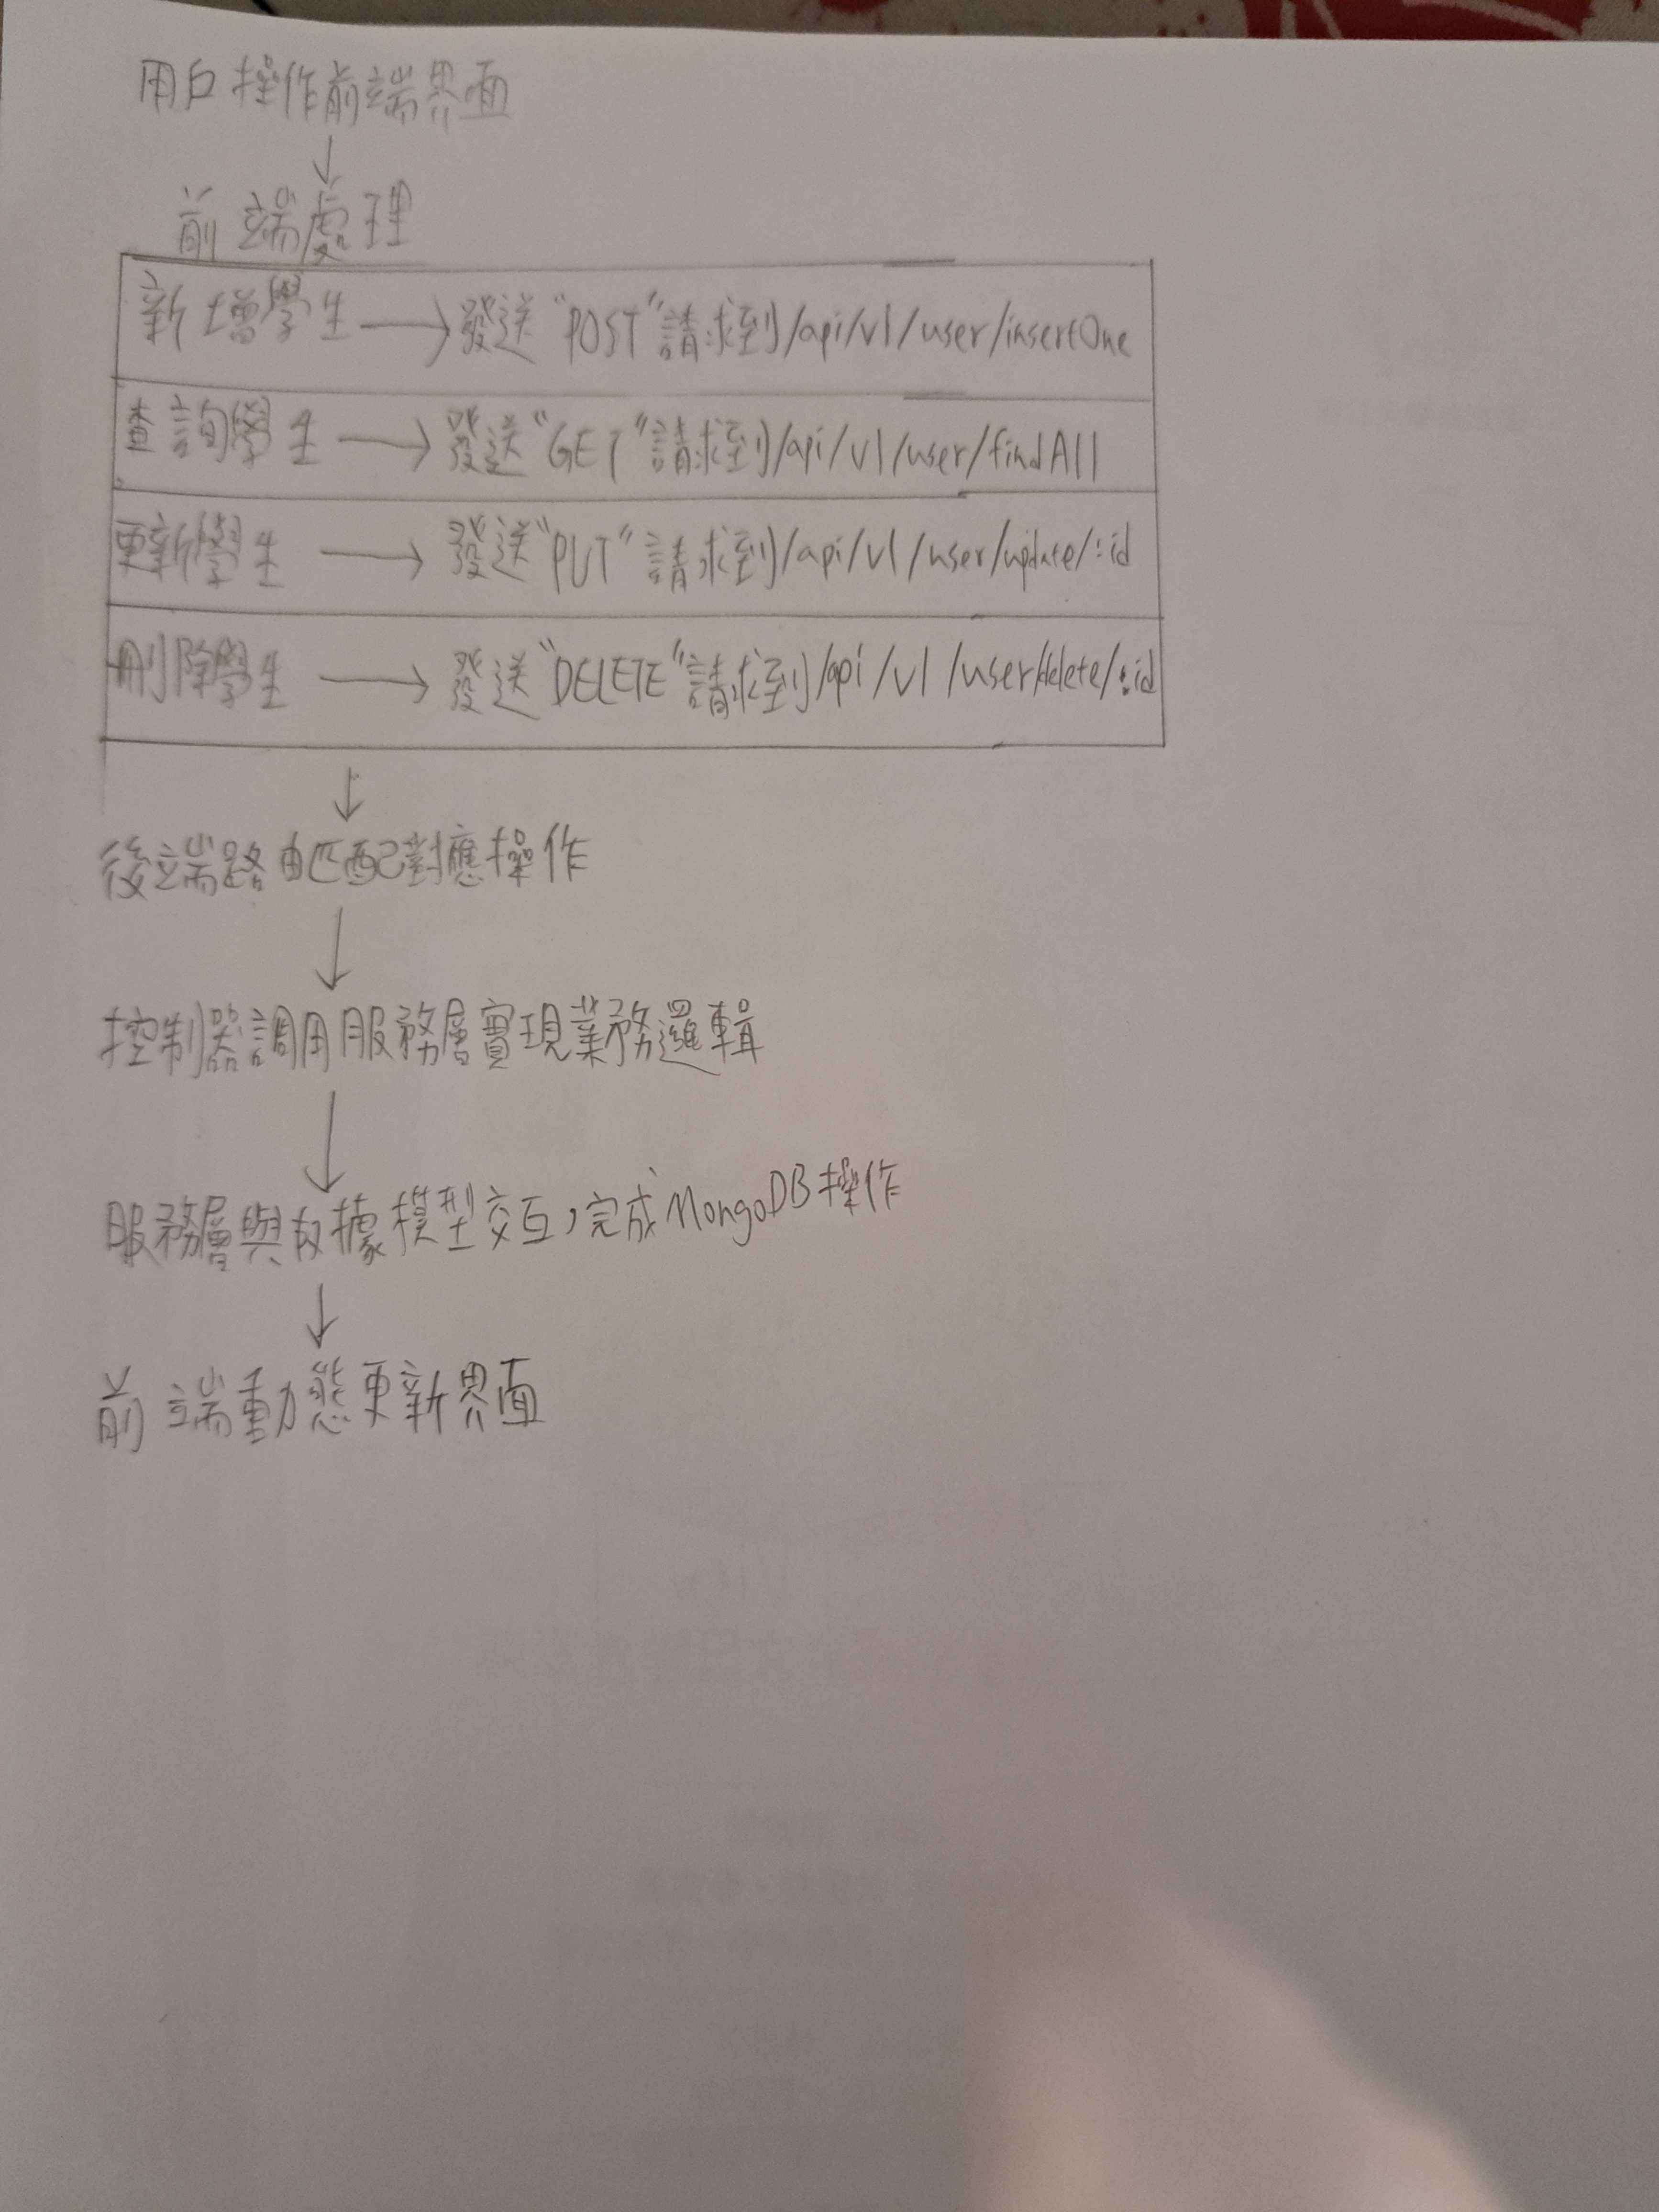 用戶操作前端界面
↓
前端處理
新增學生 → 發送"POST"請求到/api/v1/user/insertOne
查詢學生 → 發送"GET"請求到/api/v1/user/findAll
更新學生 → 發送"PUT"請求到/api/v1/user/update/:id
刪除學生 → 發送"DELETE"請求到/api/v1/user/delete/:id
↓
後端路由匹配對應操作
↓
控制器調用服務層實現業務邏輯
↓
服務層與數據模型交互,完成MongoDB操作
↓
前端動態更新界面